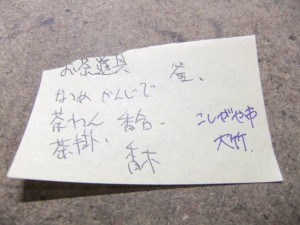 お茶道具 釜、
なつめ かんじで
茶わん 香合、
茶掛、
香木
こしがや市
大竹